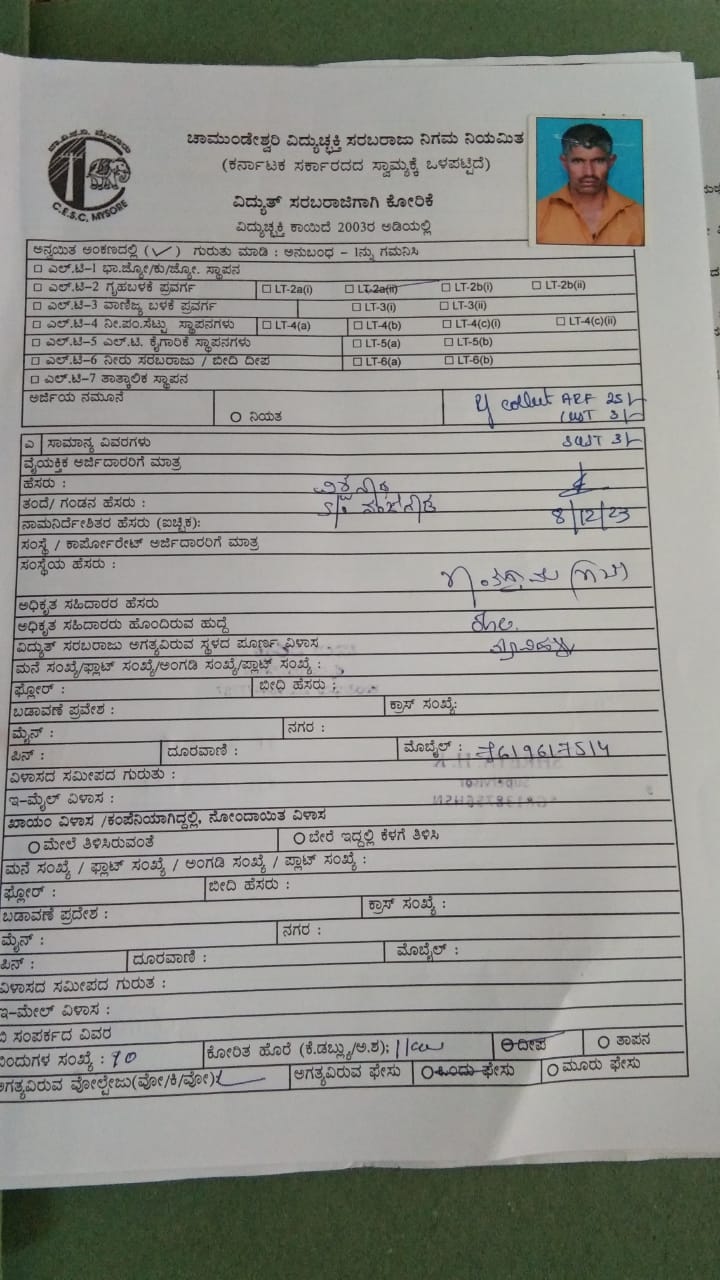 ಚಾ.ವಿ.ಸ.ನಿ. ಮೈಸೂರು
C.E.S.C, MYSORE
ಚಾಮುಂಡೇಶ್ವರಿ ವಿದ್ಯುಚ್ಛಕ್ತಿ ಸರಬರಾಜು ನಿಗಮ ನಿಯಮಿತ
(ಕರ್ನಾಟಕ ಸರ್ಕಾರದದ ಸ್ವಾಮ್ಯಕ್ಕೆ ಒಳಪಟ್ಟಿದೆ)
ವಿದ್ಯುತ್ ಸರಬರಾಜಿಗಾಗಿ ಕೋರಿಕೆ
ವಿದ್ಯುಚ್ಛಕ್ತಿ ಕಾಯಿದೆ 2003ರ ಅಡಿಯಲ್ಲಿ
ಅನ್ವಯಿತ ಅಂಕಣದಲ್ಲಿ (✓) ಗುರುತು ಮಾಡಿ : ಅನುಬಂಧ - 1ನ್ನು ಗಮನಿಸಿ
☐ ಎಲ್.ಟಿ-1 ಭಾ.ಜ್ಯೋ/ಕು/ಜ್ಯೋ. ಸ್ಥಾಪನ
☐ ಎಲ್.ಟಿ-2 ಗೃಹಬಳಕೆ ಪ್ರವರ್ಗ ☐ LT-2a(i) ☐ LT-2a(ii) ☐ LT-2b(i) ☐ LT-2b(ii)
☐ ಎಲ್.ಟಿ-3 ವಾಣಿಜ್ಯ ಬಳಕೆ ಪ್ರವರ್ಗ ☐ LT-3(i) ☐ LT-3(ii)
☐ ಎಲ್.ಟಿ-4 ನೀ.ಪಂ.ಸೆಟ್ಟು ಸ್ಥಾಪನಗಳು ☐ LT-4(a) ☐ LT-4(b) ☐ LT-4(c)(i) ☐ LT-4(c)(ii)
☐ ಎಲ್.ಟಿ-5 ಎಲ್.ಟಿ. ಕೈಗಾರಿಕೆ ಸ್ಥಾಪನಗಳು ☐ LT-5(a) ☐ LT-5(b)
☐ ಎಲ್.ಟಿ-6 ನೀರು ಸರಬರಾಜು / ಬೀದಿ ದೀಪ ☐ LT-6(a) ☐ LT-6(b)
☐ ಎಲ್.ಟಿ-7 ತಾತ್ಕಾಲಿಕ ಸ್ಥಾಪನ
ಅರ್ಜಿಯ ನಮೂನೆ O ನಿಯತ collect ARF 25/-
CGST 3/-
ಎ ಸಾಮಾನ್ಯ ವಿವರಗಳು SGST 3/-
ವೈಯಕ್ತಿಕ ಅರ್ಜಿದಾರರಿಗೆ ಮಾತ್ರ
ಹೆಸರು :
ತಂದೆ/ ಗಂಡನ ಹೆಸರು :
ನಾಮನಿರ್ದೇಶಿತರ ಹೆಸರು (ಐಚ್ಛಿಕ): 8/12/23
ಸಂಸ್ಥೆ / ಕಾರ್ಪೋರೇಟ್ ಅರ್ಜಿದಾರರಿಗೆ ಮಾತ್ರ
ಸಂಸ್ಥೆಯ ಹೆಸರು :
ಅಧಿಕೃತ ಸಹಿದಾರರ ಹೆಸರು
ಅಧಿಕೃತ ಸಹಿದಾರರು ಹೊಂದಿರುವ ಹುದ್ದೆ
ವಿದ್ಯುತ್ ಸರಬರಾಜು ಅಗತ್ಯವಿರುವ ಸ್ಥಳದ ಪೂರ್ಣ ವಿಳಾಸ
ಮನೆ ಸಂಖ್ಯೆ/ಫ್ಲಾಟ್ ಸಂಖ್ಯೆ/ಅಂಗಡಿ ಸಂಖ್ಯೆ/ಪ್ಲಾಟ್ ಸಂಖ್ಯೆ :
ಫ್ಲೋರ್ : ಬೀಧಿ ಹೆಸರು :
ಬಡಾವಣೆ ಪ್ರವೇಶ : ಕ್ರಾಸ್ ಸಂಖ್ಯೆ:
ಮೈನ್ : ನಗರ :
ಪಿನ್ : ದೂರವಾಣಿ : ಮೊಬೈಲ್ : 7619617514
ವಿಳಾಸದ ಸಮೀಪದ ಗುರುತು :
ಇ-ಮೈಲ್ ವಿಳಾಸ :
ಖಾಯಂ ವಿಳಾಸ /ಕಂಪೆನಿಯಾಗಿದ್ದಲ್ಲಿ, ನೋಂದಾಯಿತ ವಿಳಾಸ
O ಮೇಲೆ ತಿಳಿಸಿರುವಂತೆ O ಬೇರೆ ಇದ್ದಲ್ಲಿ ಕೆಳಗೆ ತಿಳಿಸಿ
ಮನೆ ಸಂಖ್ಯೆ / ಫ್ಲಾಟ್ ಸಂಖ್ಯೆ / ಅಂಗಡಿ ಸಂಖ್ಯೆ / ಪ್ಲಾಟ್ ಸಂಖ್ಯೆ :
ಫ್ಲೋರ್ : ಬೀದಿ ಹೆಸರು :
ಬಡಾವಣೆ ಪ್ರದೇಶ : ಕ್ರಾಸ್ ಸಂಖ್ಯೆ :
ಮೈನ್ : ನಗರ :
ಪಿನ್ : ದೂರವಾಣಿ : ಮೊಬೈಲ್ :
ವಿಳಾಸದ ಸಮೀಪದ ಗುರುತ :
ಇ-ಮೇಲ್ ವಿಳಾಸ :
ಬಿ ಸಂಪರ್ಕದ ವಿವರ
ಬಿಂದುಗಳ ಸಂಖ್ಯೆ : 10 ಕೋರಿತ ಹೊರೆ (ಕೆ.ಡಬ್ಲ್ಯು/ಅ.ಶ); O ದೀಪ O ತಾಪನ
ಅಗತ್ಯವಿರುವ ವೋಲ್ಟೇಜು(ವೋ/ಕಿ/ವೋ): ಅಗತ್ಯವಿರುವ ಫೇಸು O ಒಂದು ಫೇಸು O ಮೂರು ಫೇಸು